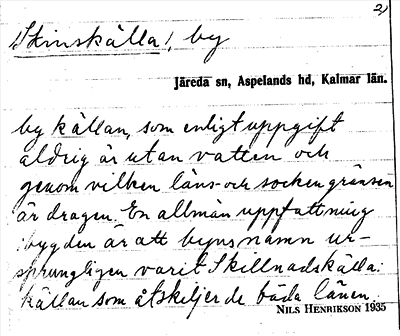 2)
Skinskälla, by
Järeda sn, Aspelands hd, Kalmar län.
by källan, som enligt uppgift
aldrig är utan vatten och
genom vilken läns- och sockengränsen
är dragen. En allmän uppfattning
i bygden är att byns namn ur-
sprungligen varit Skillnadskälla:
källan som åtskiljer de båda länen.
NILS HENRIKSON 1935